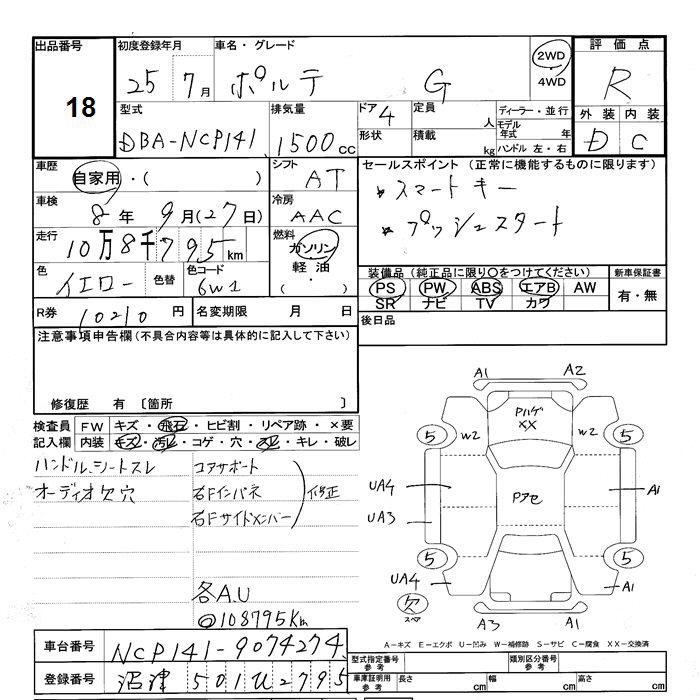 出品番号 初度登録年月 車名・グレード 評価点
18 25年 7月 ポルテ G 2WD 4WD R
型式 排気量 ドア 4 定員 人 ディーラー・並行 外装 内装
DBA-NCP141 1500cc 形状 積載 kg モデル年式 年 ハンドル 左・右 D C
車歴 自家用・( ) シフト AT セールスポイント (正常に機能するものに限ります)
車検 8年 9月(27日) 冷房 AAC スマートキー
走行 10万8千795km 燃料 ガソリン 軽油・( ) プッシュスタート
色 イエロー 色替 色コード 6W1
装備品(純正品に限り○をつけてください) 新車保証書
PS PW ABS エアB AW 有・無
SR ナビ TV カワ
R券 10210円 名変期限 月 日 後日品
注意事項申告欄(不具合内容等は具体的に記入して下さい)
修復歴 有 〔箇所 〕
検査員 FW キズ・飛石・ヒビ割・リペア跡・×要
記入欄 内装 キズ・汚レ・コゲ・穴・スレ・キレ・破レ
ハンドル、シートスレ コアサポート
オーディオ欠穴 右Fインパネ 修正
右Fサイドメンバー
各A.U
@108795Km
A1 A2
Pハゲ
XX
5 W2 W2 5
UA4 Pアセ A1
UA3
5 5
UA4 A1
欠 スペア
A3 A1
A-キズ E-エクボ U-凹み W-補修跡 S-サビ C-腐食 XX-交換済
車台番号 NCP141-9074274 型式指定番号 参考 類別区分番号 参考
登録番号 沼津 501 2795 車庫証明用 参考 長さ cm 幅 cm 高さ cm